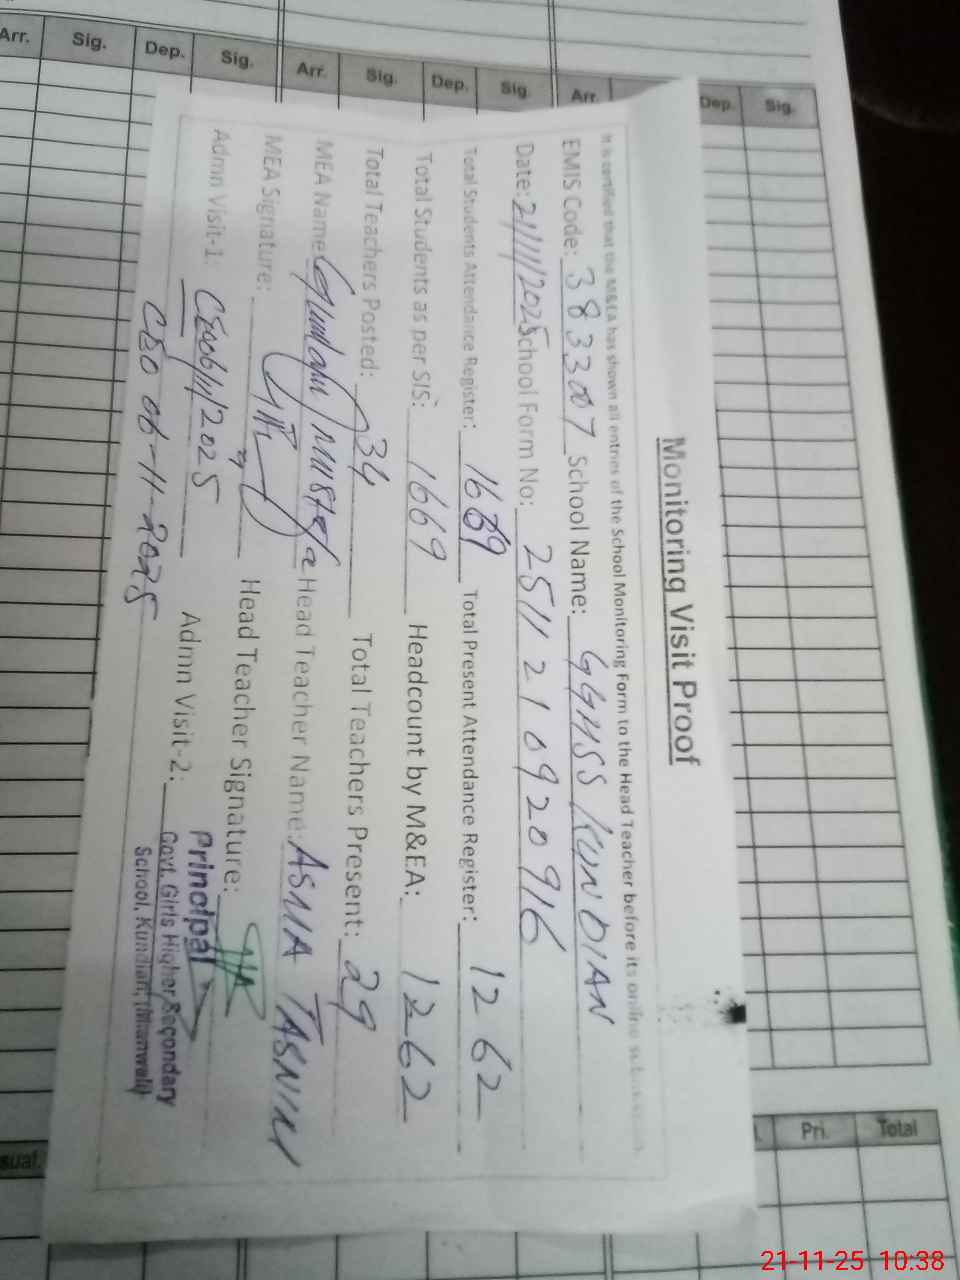 Arr. Sig. Dep. Sig. Arr. Sig. Dep. Sig. Arr. Dep. Sig.
Monitoring Visit Proof
It is certified that the M&EA has shown all entries of the School Monitoring Form to the Head Teacher before its online
EMIS Code: 3833007 School Name: GGHSS KUNDIAN
Date: 21/11/2025 School Form No: 25112109209 16
Total Students Attendance Register: 1669 Total Present Attendance Register: 1262
Total Students as per SIS: 1669 Headcount by M&EA: 1262
Total Teachers Posted: 34 Total Teachers Present: 29
MEA Name: Ghulam Mustafa Head Teacher Name: ASMA TASNIM
MEA Signature: Head Teacher Signature:
Admn Visit-1: CEO 06/11/2025 Admn Visit-2:
CEO 06-11-2025
Principal
Govt. Girls Higher Secondary
School, Kundian, (Mianwali)
Pri. Total
21-11-25 10:38